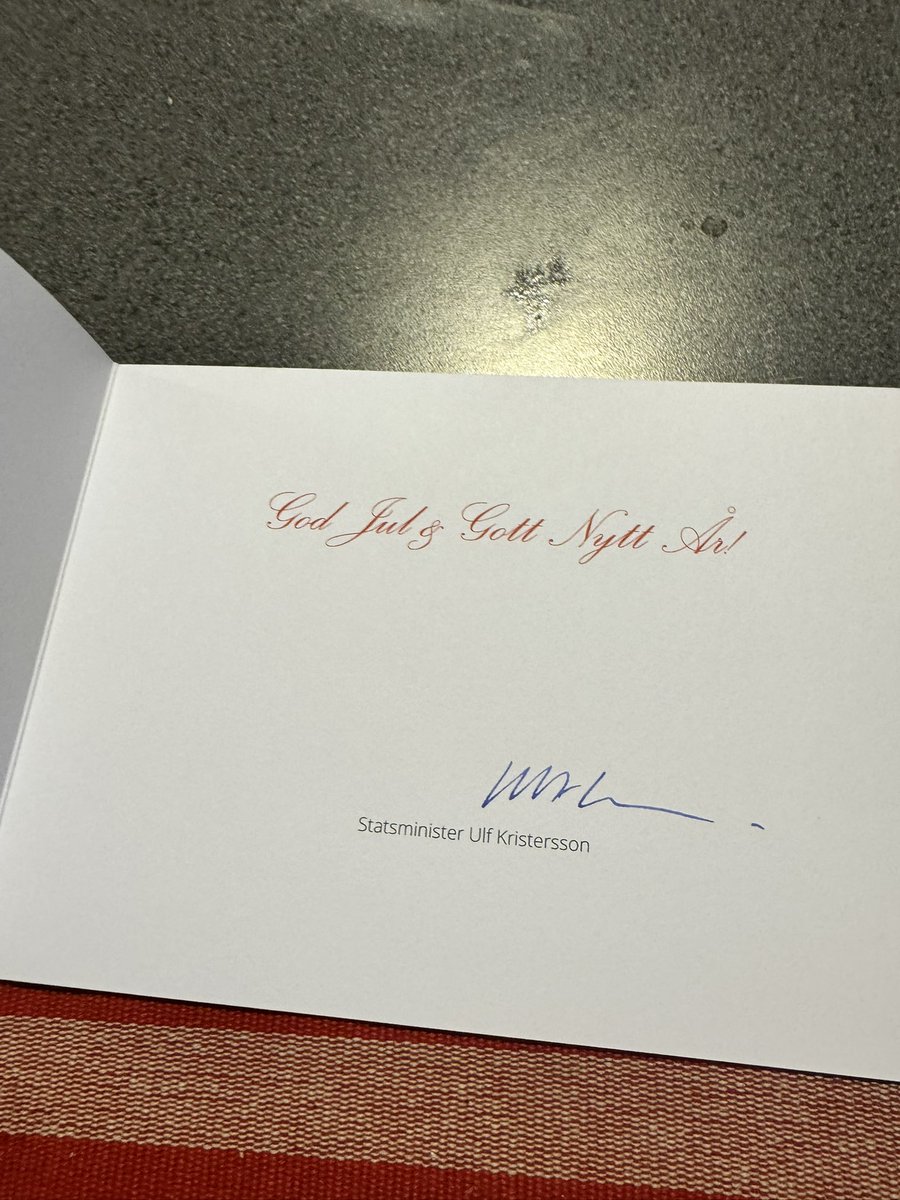 God Jul & Gott Nytt År!
Statsminister Ulf Kristersson